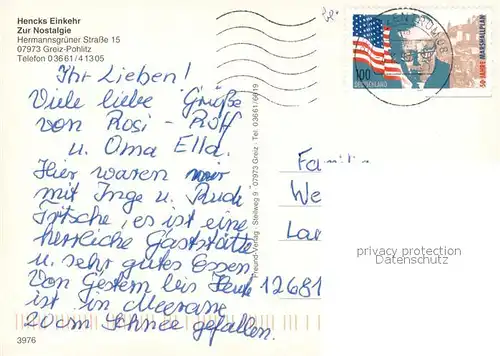 Hencks Einkehr
Zur Nostalgie
Hermannsgrüner Straße 15
07973 Greiz-Pohlitz
Telefon 03661/41305
Ihr Lieben!
Viele liebe Grüße
von Rosi - Rolf
u. Oma Ella.
Hier waren wir
mit Inge u. Rudi
Fritsche, es ist eine
herrliche Gaststätte
u. sehr gutes Essen.
Von Gestern bis Heute
ist in Meerane
20cm Schnee gefallen.
3976
Freund-Verlag · Steilweg 9 · 07973 Greiz · Tel. 03661/6619
100
DEUTSCHLAND
50 JAHRE MARSHALLPLAN
We
Lan
12681
privacy protection
Datenschutz